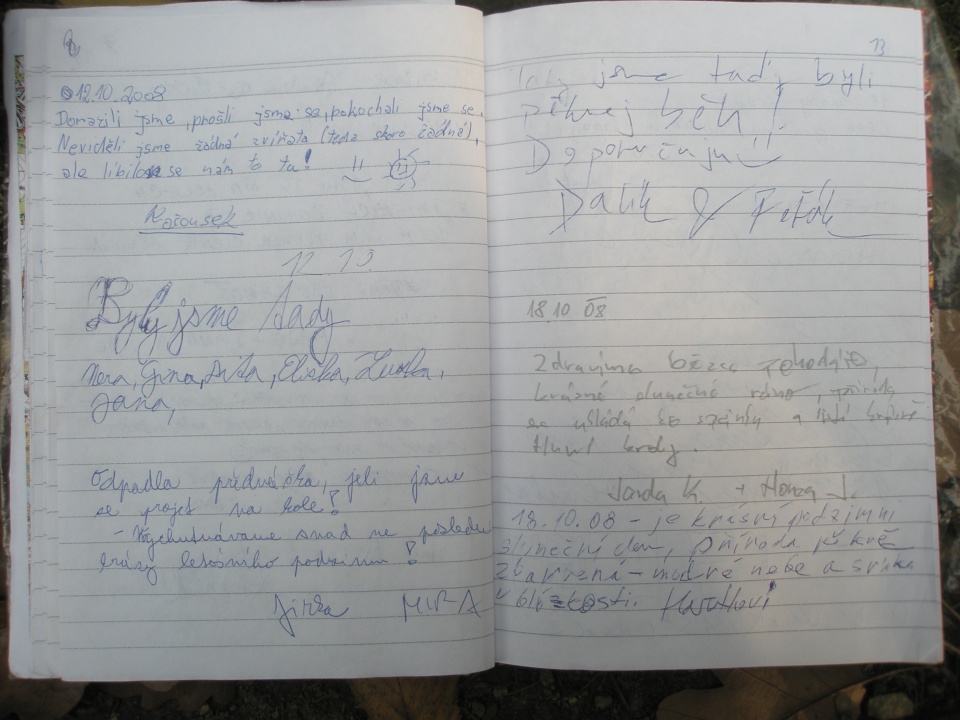 12.10.2008
Dorazili jsme, prošli jsme se, pokochali jsme se.
Neviděli jsme žádná zvířata (teda skoro žádné),
ale líbilo se nám to tu!
12.10.
Byly jsme tady
Nera, Gina, Eliška, Lucka,
Jana,
Odpadla přednáška, jeli jsme
se projet na kole!
- Vychutnáváme snad ne poslední
krásy letošního podzimu!
Jirka MIRA
13
jsme tady byli
pěknej běh!
Doporučuju
Dalik & Feťák
18.10 08
Zdravíme běžce
krásné slunečné ráno, příroda
se ukládá ke spánku a listí
tlumí kroky.
Jarda K. + Honza J.
18.10.08 - je krásný podzimní
slunečný den, příroda pěkně
zbarvená - modré nebe a
v blízkosti.